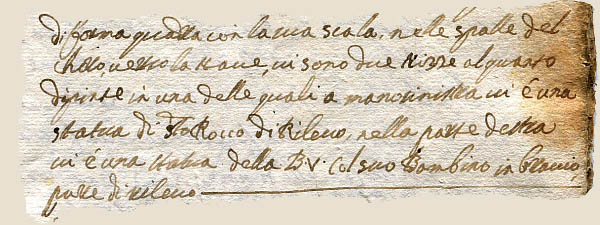 di forma quadra con la sua scala, nelle spalle del
Choro, verso la nave, vi sono due Nizze alquanto
dipinte in una delle quali a mancinistra vi é una
statua di S.to Rocco di Rilevo, nella parte destra
vi é una statua della B.V. col suo Bambino in braccio,
pure di rilevo